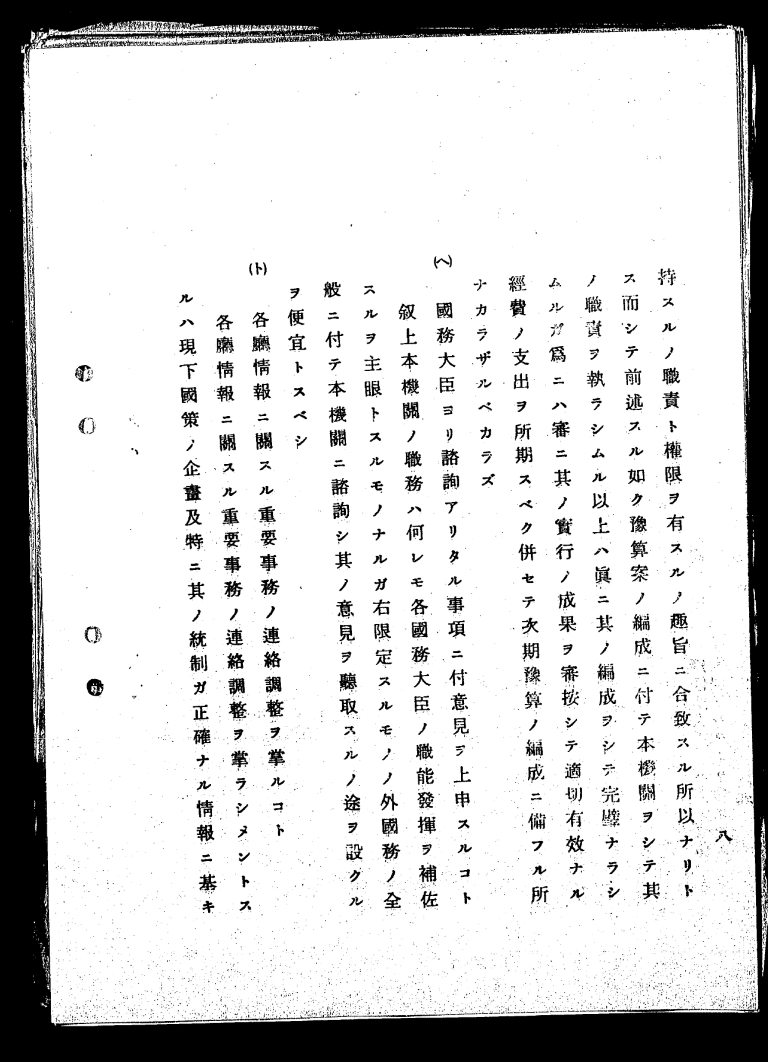 八
持スルノ職責ト權限ヲ有スルノ趣旨ニ合致スル所以ナリト
ス而シテ前述スル如ク豫算案ノ編成ニ付テ本機關ヲシテ其
ノ職責ヲ執ラシムル以上ハ眞ニ其ノ編成ヲシテ完璧ナラシ
ムルガ爲ニハ審ニ其ノ實行ノ成果ヲ審按シテ適切有效ナル
經費ノ支出ヲ所期スベク併セテ次期豫算ノ編成ニ備フル所
ナカラザルベカラズ
(ヘ) 國務大臣ヨリ諮詢アリタル事項ニ付意見ヲ上申スルコト
叙上本機關ノ職務ハ何レモ各國務大臣ノ職能發揮ヲ補佐
スルヲ主眼トスルモノナルガ右限定スルモノノ外國務ノ全
般ニ付テ本機關ニ諮詢シ其ノ意見ヲ聽取スルノ途ヲ設クル
ヲ便宜トスベシ
(ト) 各廳情報ニ關スル重要事務ノ連絡調整ヲ掌ルコト
各廳情報ニ關スル重要事務ノ連絡調整ヲ掌ラシメントス
ルハ現下國策ノ企畫及特ニ其ノ統制ガ正確ナル情報ニ基キ